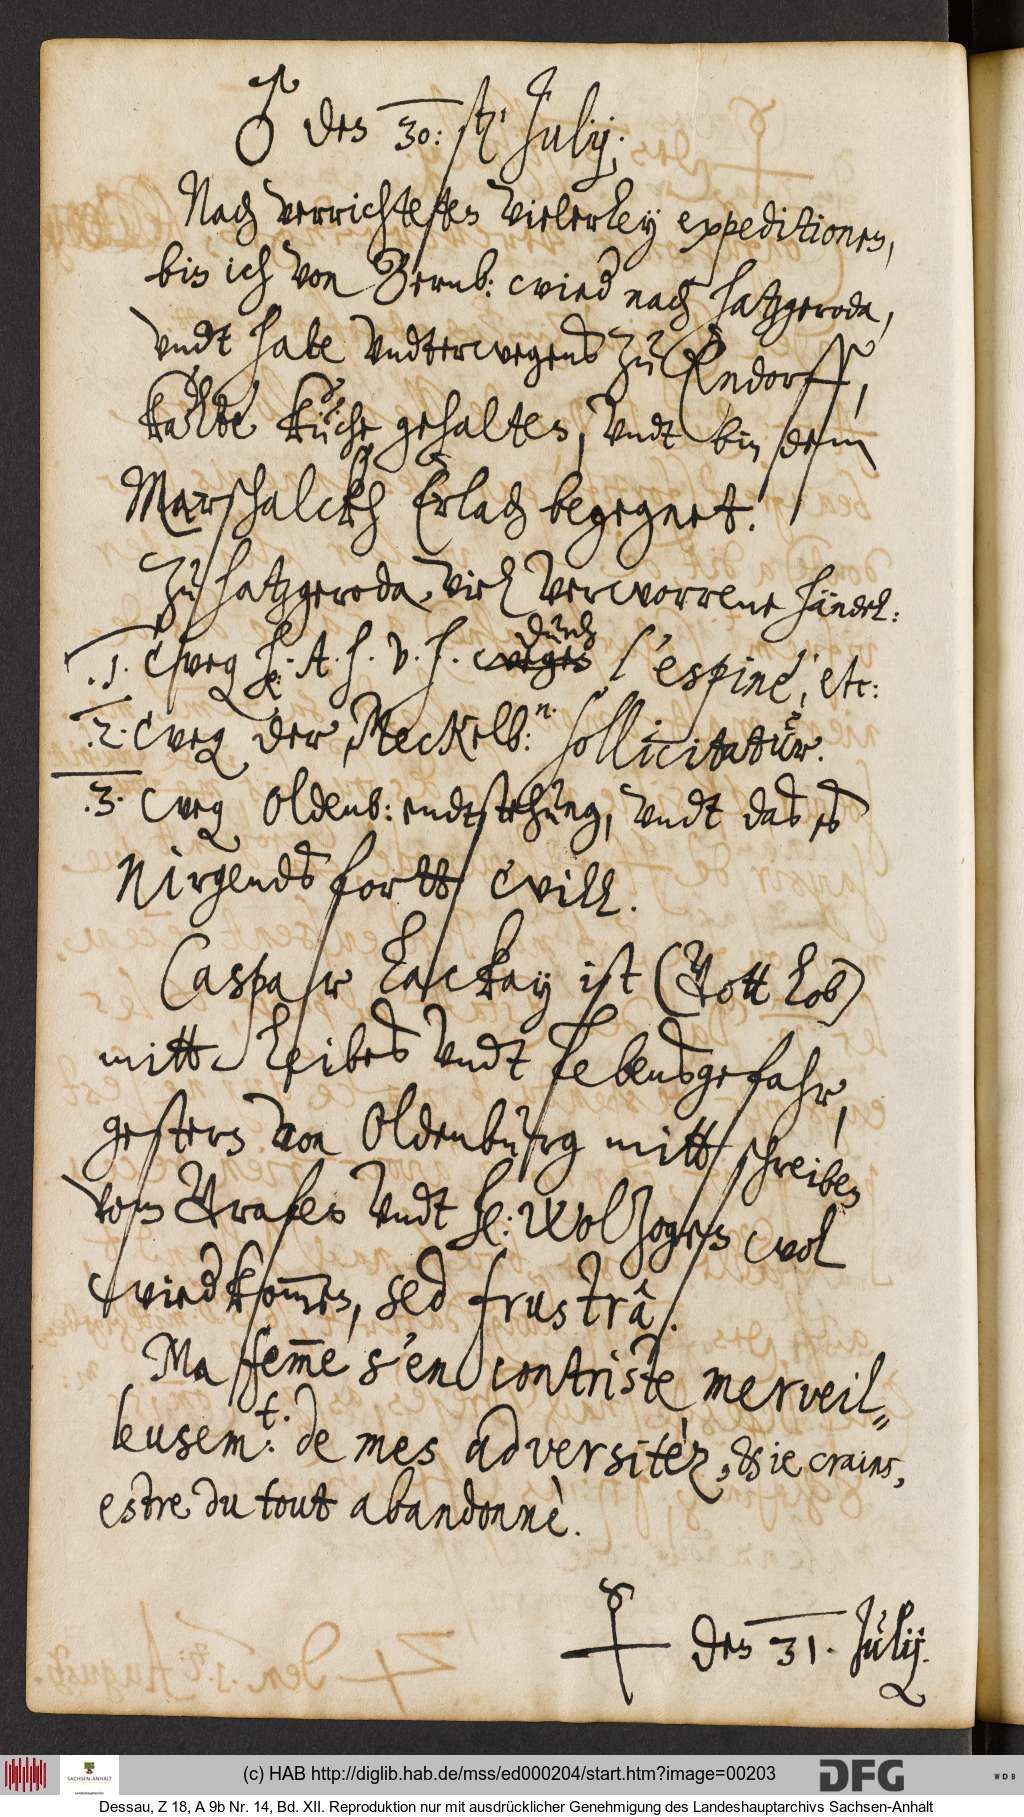 ♂ den 30: sten: Julij;
Nach verrichteten vielerley expeditionen,
bin ich von Bernb: wied nach Hatzgeroda,
vndt habe vndterwegens zu Endorff,
kalte küche gehalten, vndt bin dem
Marschalckh Erlach begegnet.
Zu Hatzgeroda, viel verworrene händel:
.1. weg H: A. H. V. H. weges durch l'espine, etc:
.2. weg der Meckelb:n. sollicitatur.
.3. weg Oldenb: endtstehung, vndt das es
Nirgends fortt will.
Caspar Lackay ist (Gott lob)
mitt leibes vndt Lebensgefahr,
gestern von Oldenburg mitt schreiben
vom Grafen vndt H: Wolzogen wol
wiedkom̅en, sed frustrâ.
Ma fem̅e s'en contriste merveil=
leusem:t. de mes adversitèz, & ie crains,
estre du tout abandonnè.
☿ den 31. Julij.
(c) HAB http://diglib.hab.de/mss/ed000204/start.htm?image=00203
SACHSEN-ANHALT
Landeshauptarchiv
DFG
WDB
Dessau, Z 18, A 9b Nr. 14, Bd. XII. Reproduktion nur mit ausdrücklicher Genehmigung des Landeshauptarchivs Sachsen-Anhalt